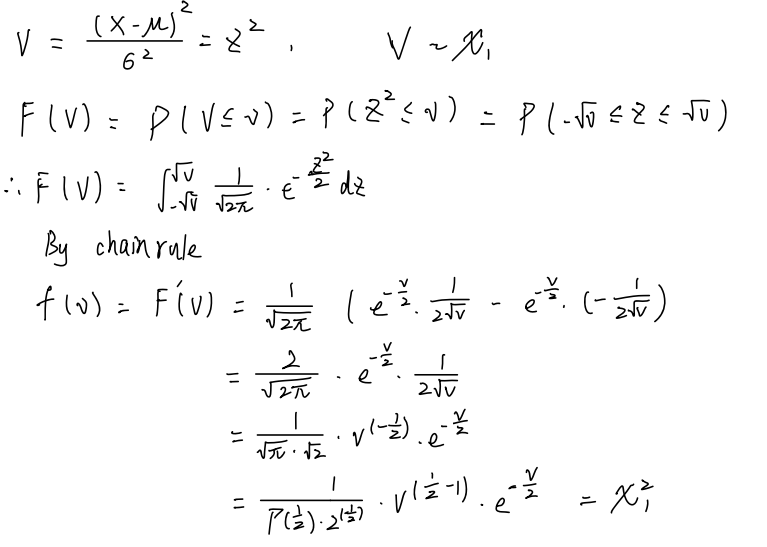 V = (X-μ)²/σ² = Z² , V ~ χ₁
F(V) = P(V≤v) = P(Z²≤v) = P(-√v ≤ Z ≤ √v)
∴ F(V) = ∫_{-√v}^{√v} 1/√(2π) · e^{-z²/2} dz
By chain rule
f(v) = F'(V) = 1/√(2π) (e^{-v/2} · 1/(2√v) - e^{-v/2} · (-1/(2√v))
= 2/√(2π) · e^{-v/2} · 1/(2√v)
= 1/(√π · √2) · v^{(-1/2)} · e^{-v/2}
= 1/(Γ(1/2) · 2^{(1/2)}) · v^{(1/2 -1)} · e^{-v/2} = χ₁²